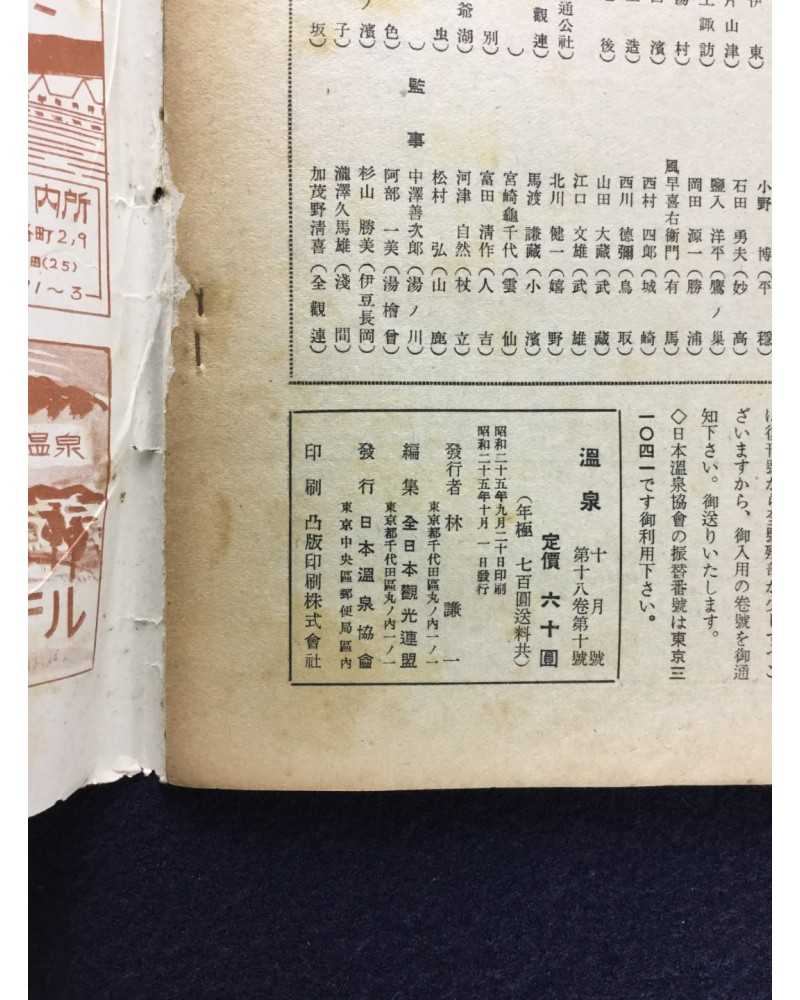 伊東
片山津
上諏訪
湯村
濱
後
造
通公社)
觀連)
)
別)
爺湖)
虫)
色)
ノ濱)
子)
坂)
監事
小野博(平穩)
石田勇夫(妙高)
鹽入洋平(鷹ノ巢)
岡田源一(勝浦)
風早喜右衞門(有馬)
西村四郎(城崎)
西川德彌(鳥取)
山田大藏(武藏)
江口文雄(武雄)
北川健一(嬉野)
馬渡謙藏(小濱)
宮崎龜千代(雲仙)
富田淸作(人吉)
河津自然(杖立)
松村弘(山鹿)
中澤善次郎(湯ノ川)
阿部一美(湯檜曾)
杉山勝美(伊豆長岡)
瀧澤久馬雄(淺間)
加茂野淸喜(全觀連)
ざいますから、御入用の卷號を御通
知下さい。御送りいたします。
◇日本溫泉協會の振替番號は東京三
一〇四一です御利用下さい。
溫泉 十月號
第十八卷第十號
定價 六十圓
(年極 七百圓送料共)
昭和二十五年九月二十日印刷
昭和二十五年十月一日發行
發行者 林謙一
東京都千代田區丸ノ內一ノ一
編集 全日本觀光連盟
東京都千代田區丸ノ內一ノ一
發行 日本溫泉協會
東京中央區郵便局區內
印刷 凸版印刷株式會社
内所
町2,9
田(25)
1〜3
温泉
テル